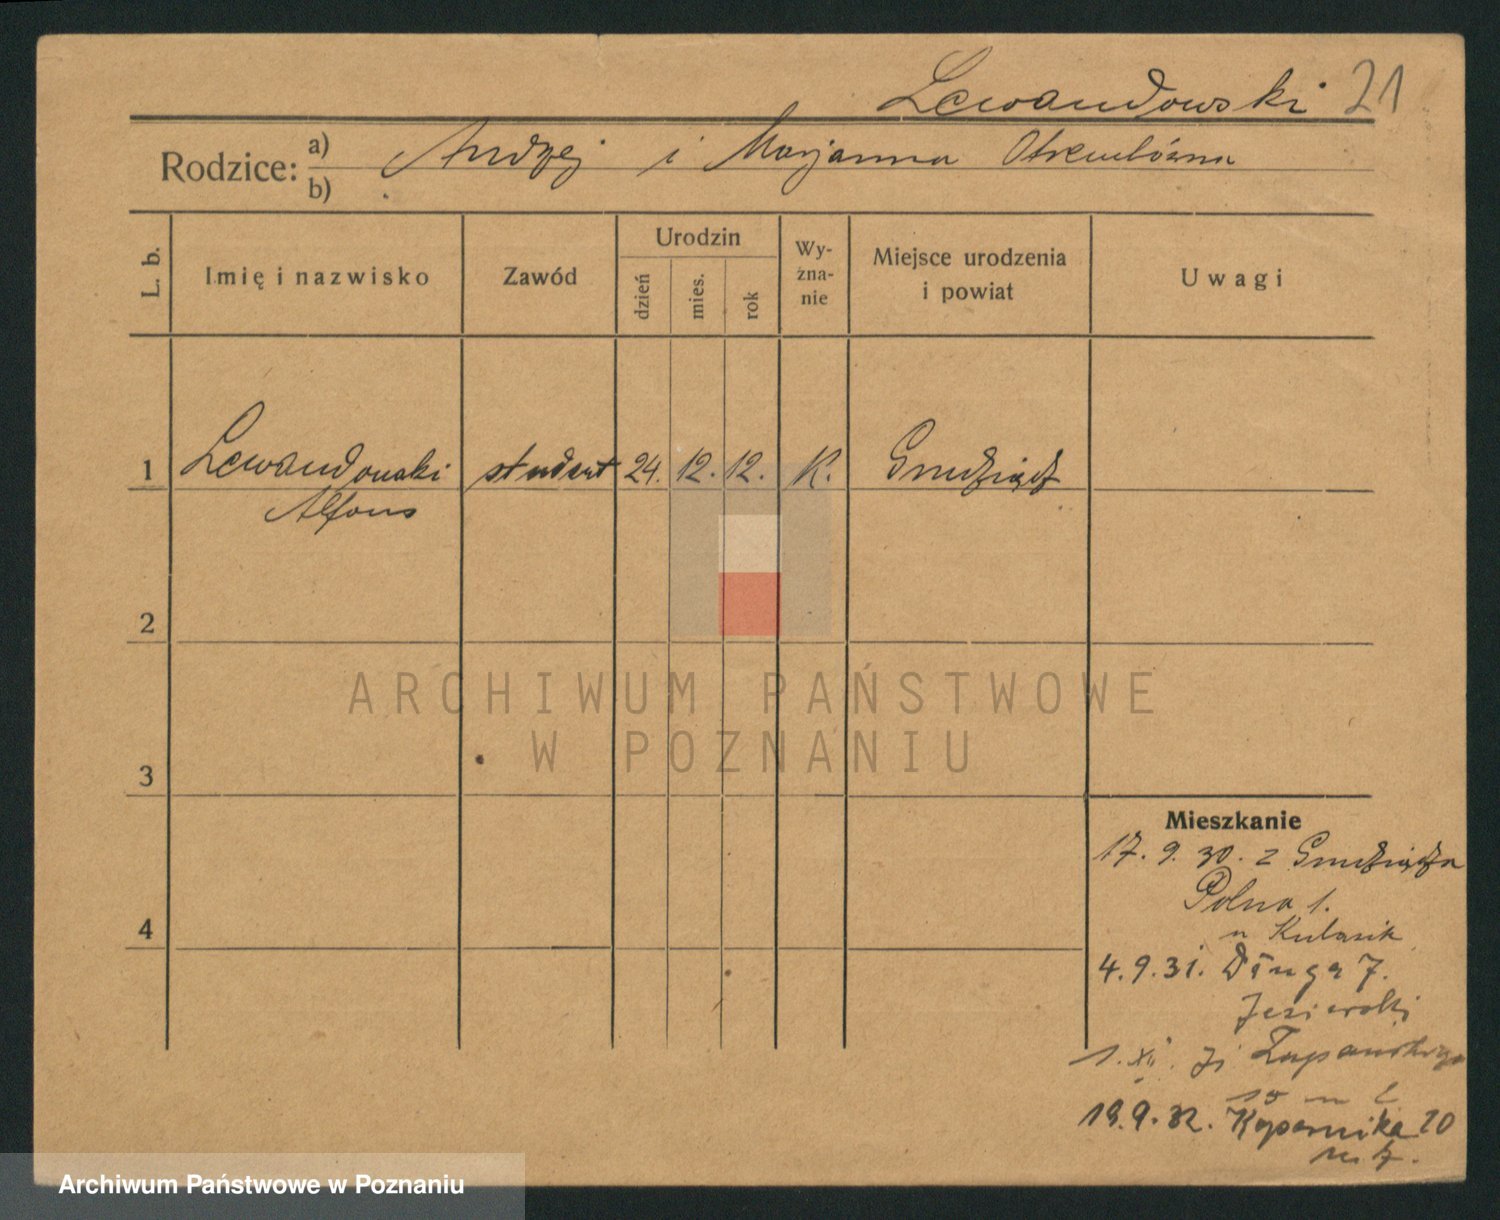 Lewandowski 21
Rodzice: a) Andrzej i Marjanna Otrembózna
b)
L. b. Imię i nazwisko Zawód Urodzin dzień mies. rok Wy-zna-nie Miejsce urodzenia i powiat Uwagi
1 Lewandowski student 24. 12. 12. K. Grudziądz
Alfons
2
ARCHIWUM PAŃSTWOWE
W POZNANIU
3
Mieszkanie
17. 9. 30. z Grudziądza
Polna 1.
u Kubasik
4
4. 9. 31. Długa 7.
Jezierski
1. XII. 31
19. 9. 32. Kopernika 10
m. 7.
Archiwum Państwowe w Poznaniu